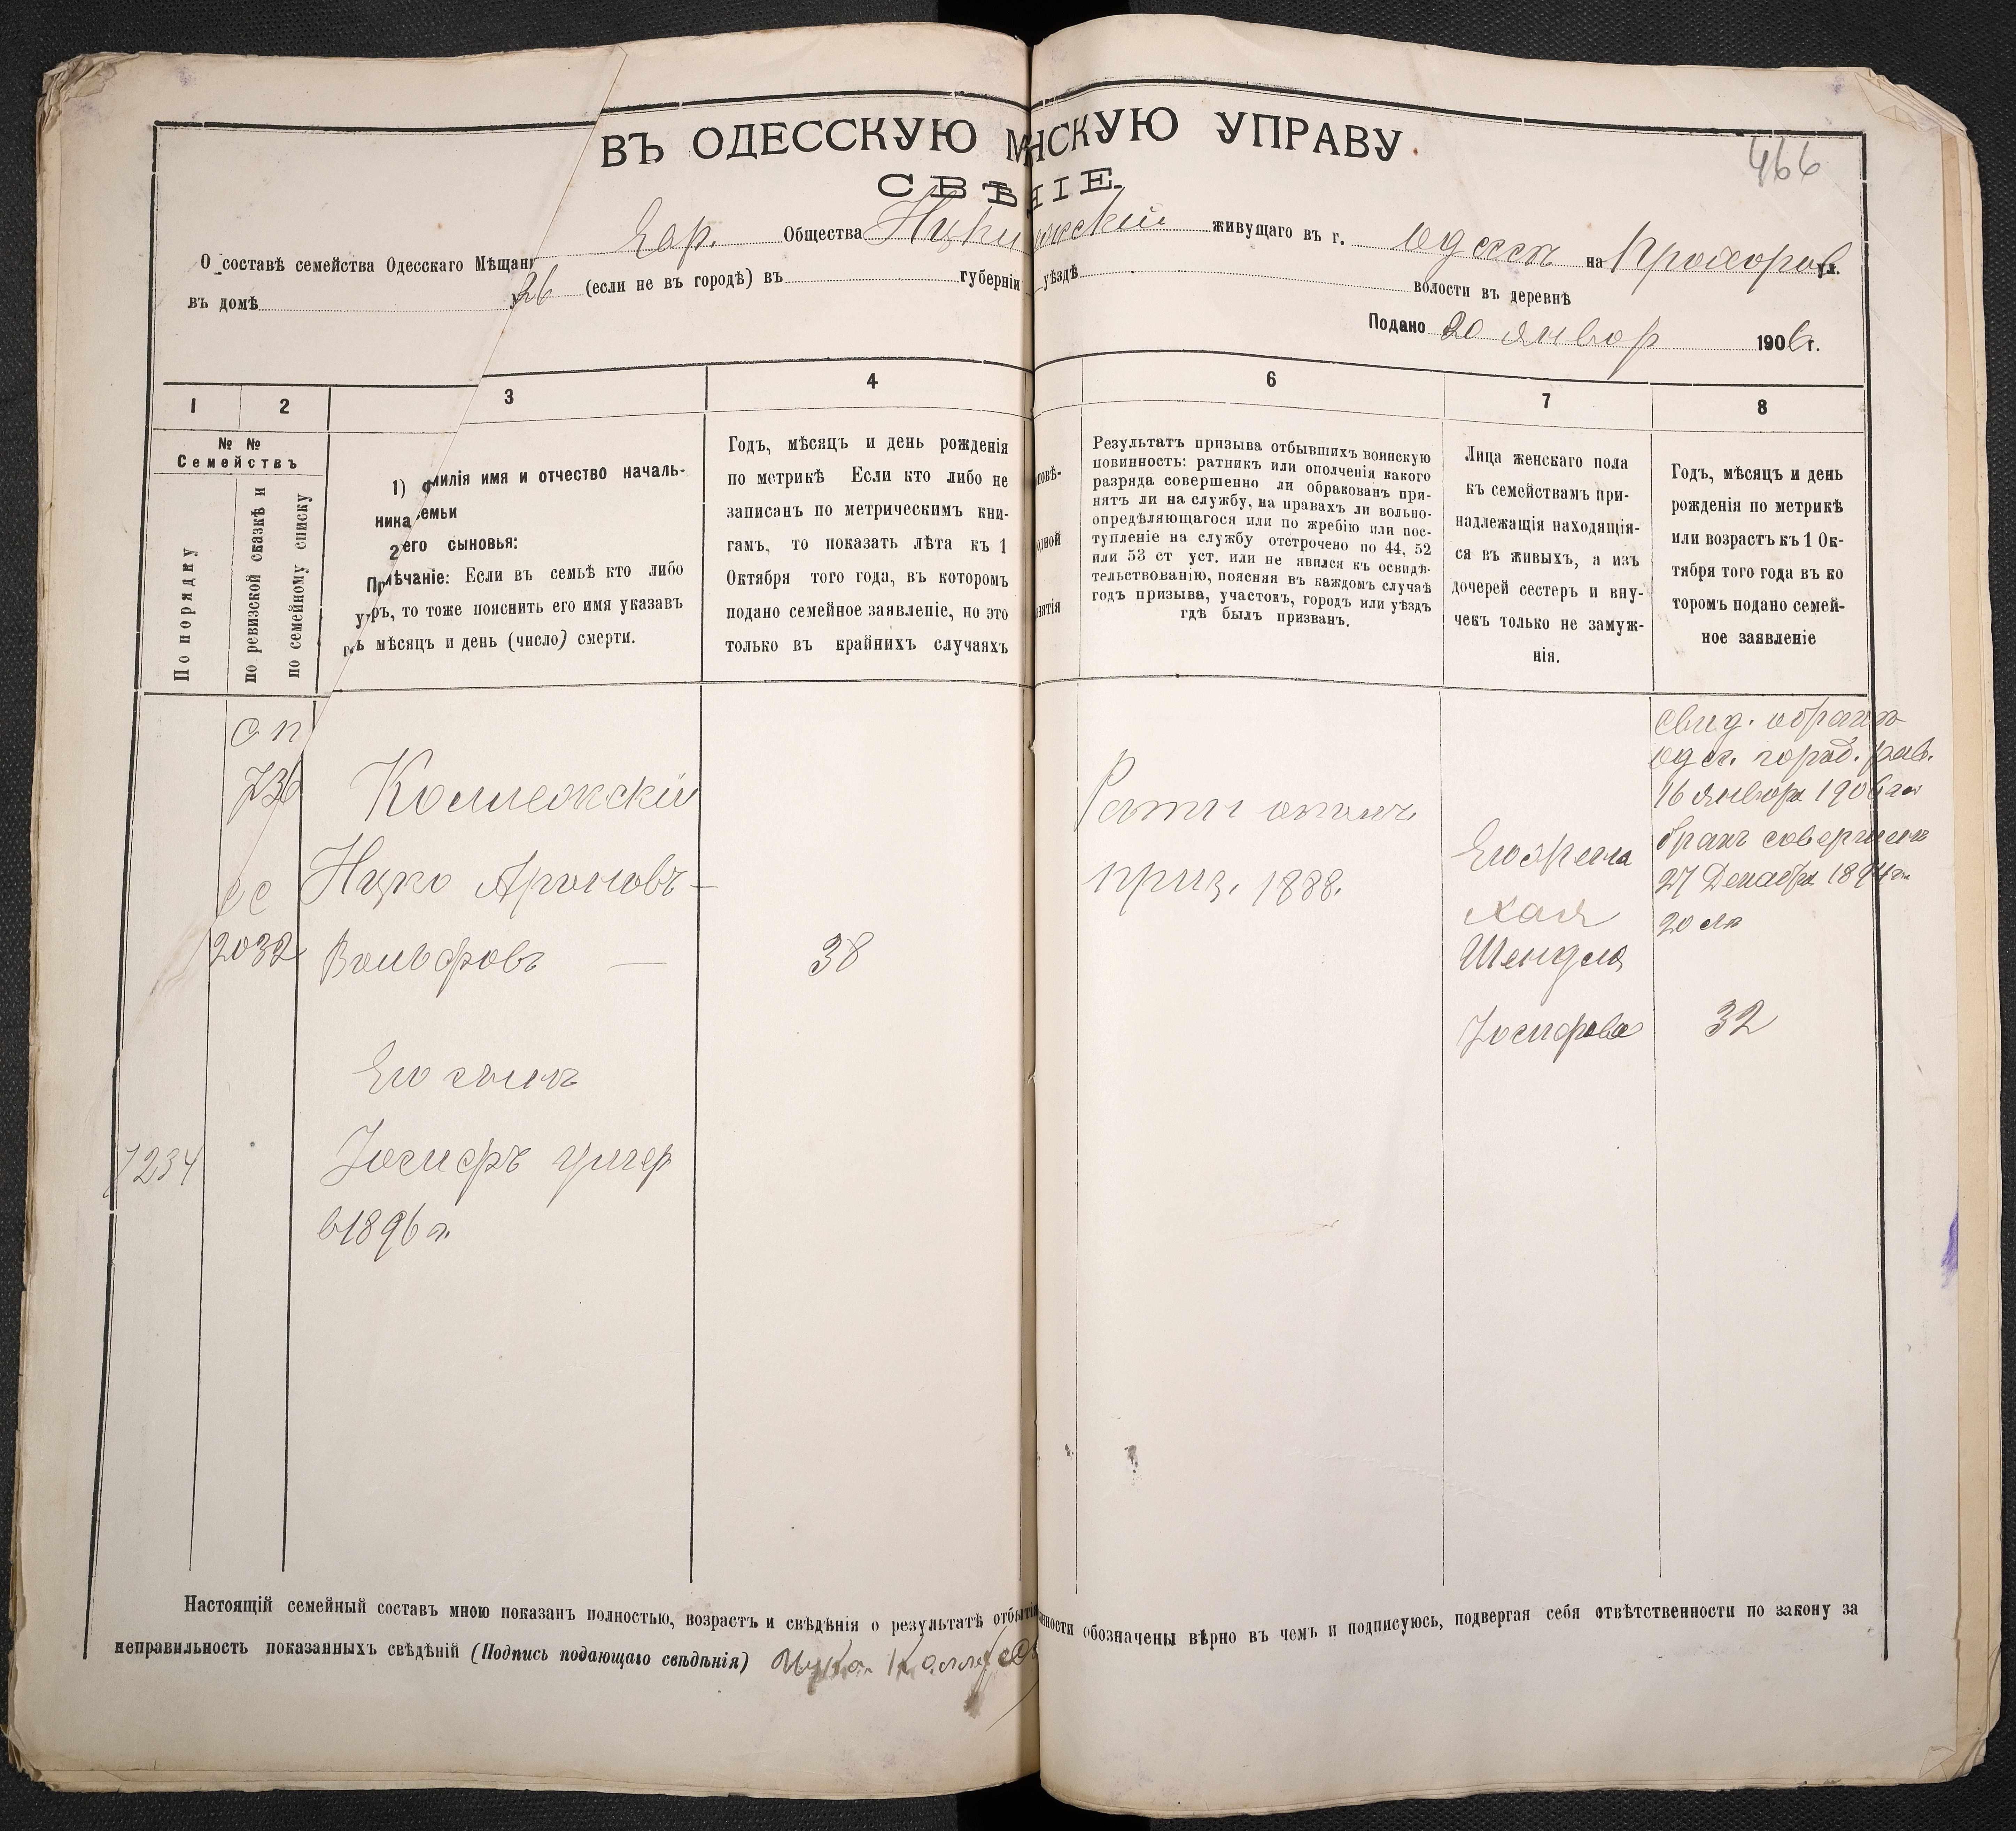 ВЪ ОДЕССКУЮ М НСКУЮ УПРАВУ
466
СВѢ НІЕ
О составѣ семейства Одесскаго Мѣщани Евр. Общества Ицки живущаго въ г. Одессѣ на Прохоров ул.
въ домѣ 26 (если не въ городѣ) въ губерніи уѣздѣ волости въ деревнѣ
Подано 20 январ 1906 г.
1 2 3 4 6 7 8
№ №
Семействъ
По порядку
по ревизской сказкѣ и
по семейному списку
1) милія имя и отчество началь-
ника емьи
2 его сыновья:
Пр мѣчаніе: Если въ семьѣ кто либо
у ръ, то тоже пояснить его имя указавъ
г ъ мѣсяцъ и день (число) смерти.
Годъ, мѣсяцъ и день рожденія
по метрикѣ Если кто либо не
записанъ по метрическимъ кни-
гамъ, то показать лѣта къ 1
Октября того года, въ которомъ
подано семейное заявленіе, но это
только въ крайнихъ случаяхъ
повѣ-
одной
нятія
Результатъ призыва отбывшихъ воинскую
повинность: ратникъ или ополченія какого
разряда совершенно ли обракованъ при-
нятъ ли на службу, на правахъ ли вольно-
опредѣляющагося или по жребію или пос-
тупленіе на службу отстрочено по 44, 52
или 53 ст уст. или не явился къ освидѣ-
тельствованію, поясняя въ каждомъ случаѣ
годъ призыва, участокъ, городъ или уѣздъ
гдѣ былъ призванъ.
Лица женскаго пола
къ семействамъ при-
надлежащія находящія-
ся въ живыхъ, а изъ
дочерей сестеръ и вну-
чекъ только не замуж-
нія.
Годъ, мѣсяцъ и день
рожденія по метрикѣ
или возрастъ къ 1 Ок-
тября того года въ ко
торомъ подано семей-
ное заявленіе
с п
736
ес
2032
Ицко Ароновъ
Вольфовъ
38
Его сынъ
1234
Іосифъ умер
в 1896 г.
Ратн ополч.
приз. 1888.
Его жена
Хая
Шендля
Іосифова
свид. о бракѣ
одес. город. рав.
16 января 1906 г
бракъ совершенъ
27 Декабря 1894 г
20 лѣ
32
Настоящій семейный составъ мною показанъ полностью, возрастъ и свѣдѣнія о результатѣ отбытія нности обозначены вѣрно въ чемъ и подписуюсь, подвергая себя отвѣтственности по закону за
неправильность показанныхъ свѣдѣній (Подпись подающаго свѣдѣнія)